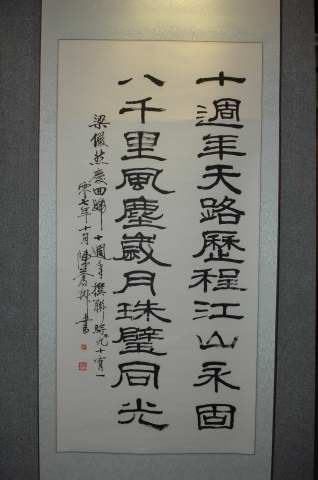 十週年天路歷程江山永固
八千里風塵歲月珠璧同光
梁俊然慶回歸十週年撰聯時年九十有一
零七年十月陳景舒書